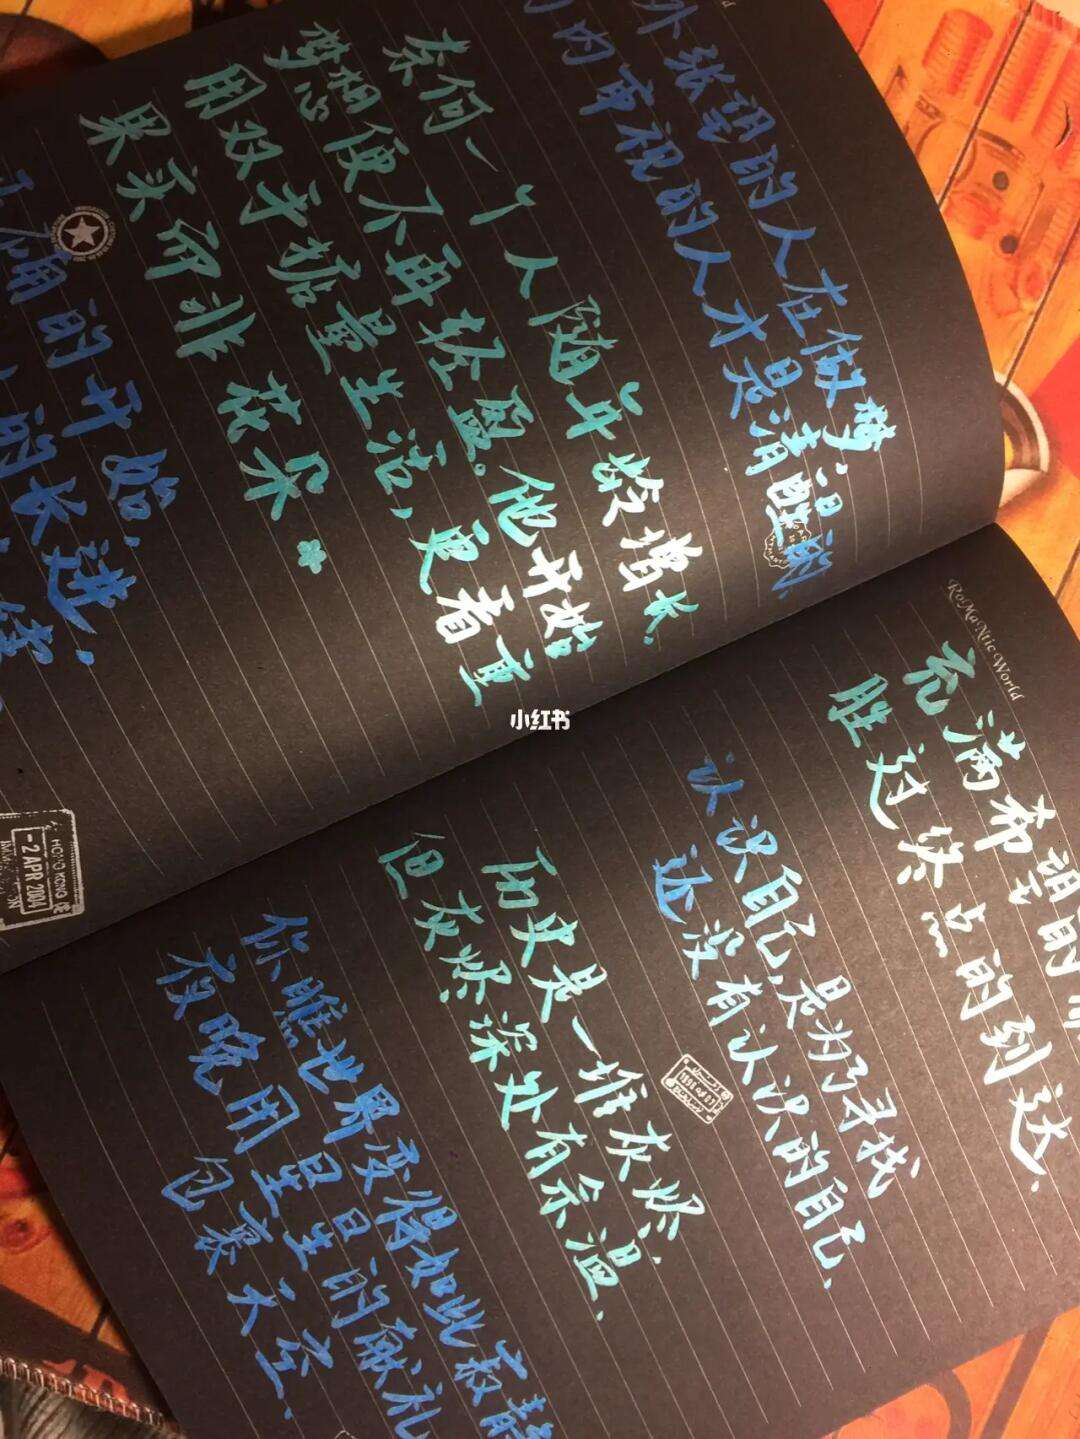 外张望的人在做梦
内审视的人才是清醒的
奈何一个人随年龄增长,
梦想便不再轻盈。他开始
用双手掂量生活,更看重
果实而非花朵
的开始,
的长进.
HONG KONG
-2 APR 2004
RoMaNtic World
充满希望的
胜过终点的到达.
认识自己,是为了寻找
还没有认识的自己.
历史是一堆灰烬,
但灰烬深处有余温.
你瞧世界变得如此寂静
夜晚用星星的献礼
包裹天空.
小红书